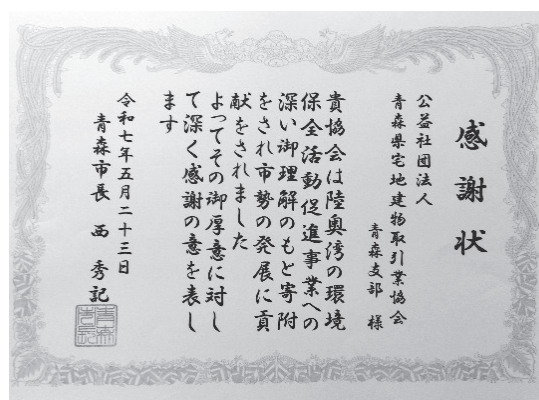 感謝状
公益社団法人
青森県宅地建物取引業協会
青森支部 様
貴協会は陸奥湾の環境
保全活動促進事業への
深い御理解のもと寄附
をされ市勢の発展に貢
献をされました
よってその御厚意に対し
て深く感謝の意を表し
ます
令和七年五月二十三日
青森市長 西 秀記